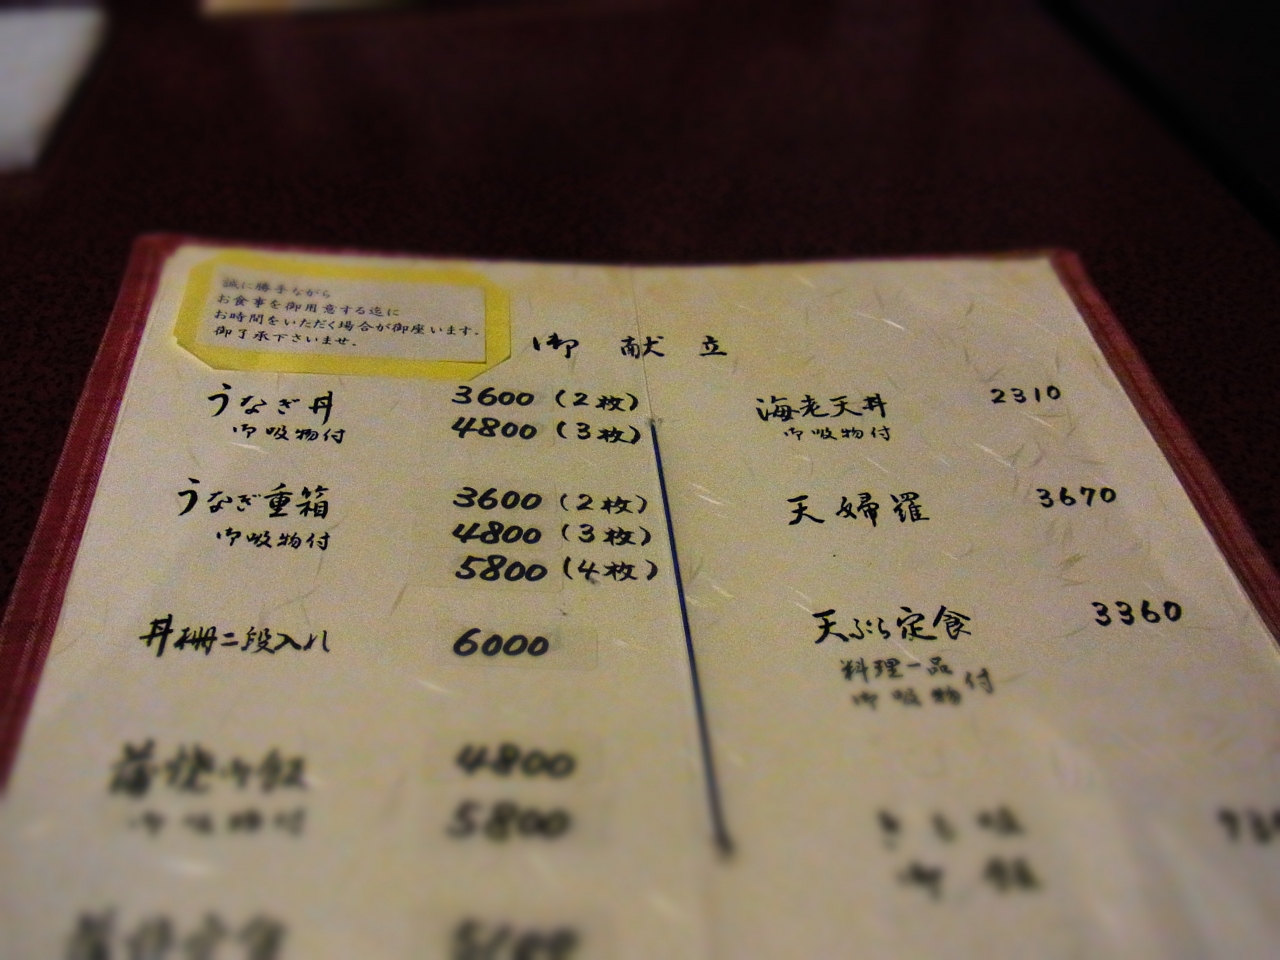 誠に勝手ながら
お食事を御用意する迄に
お時間をいただく場合が御座います。
御了承下さいませ。
御献立
うなぎ丼 3600 (2枚)
御吸物付 4800 (3枚)
うなぎ重箱 3600 (2枚)
御吸物付 4800 (3枚)
5800 (4枚)
丼柵二段入れ 6000
蒲焼御飯 4800
御吸物付 5800
海老天丼 2310
御吸物付
天婦羅 3670
天ぷら定食 3360
料理一品
御吸物付
きも吸
御飯